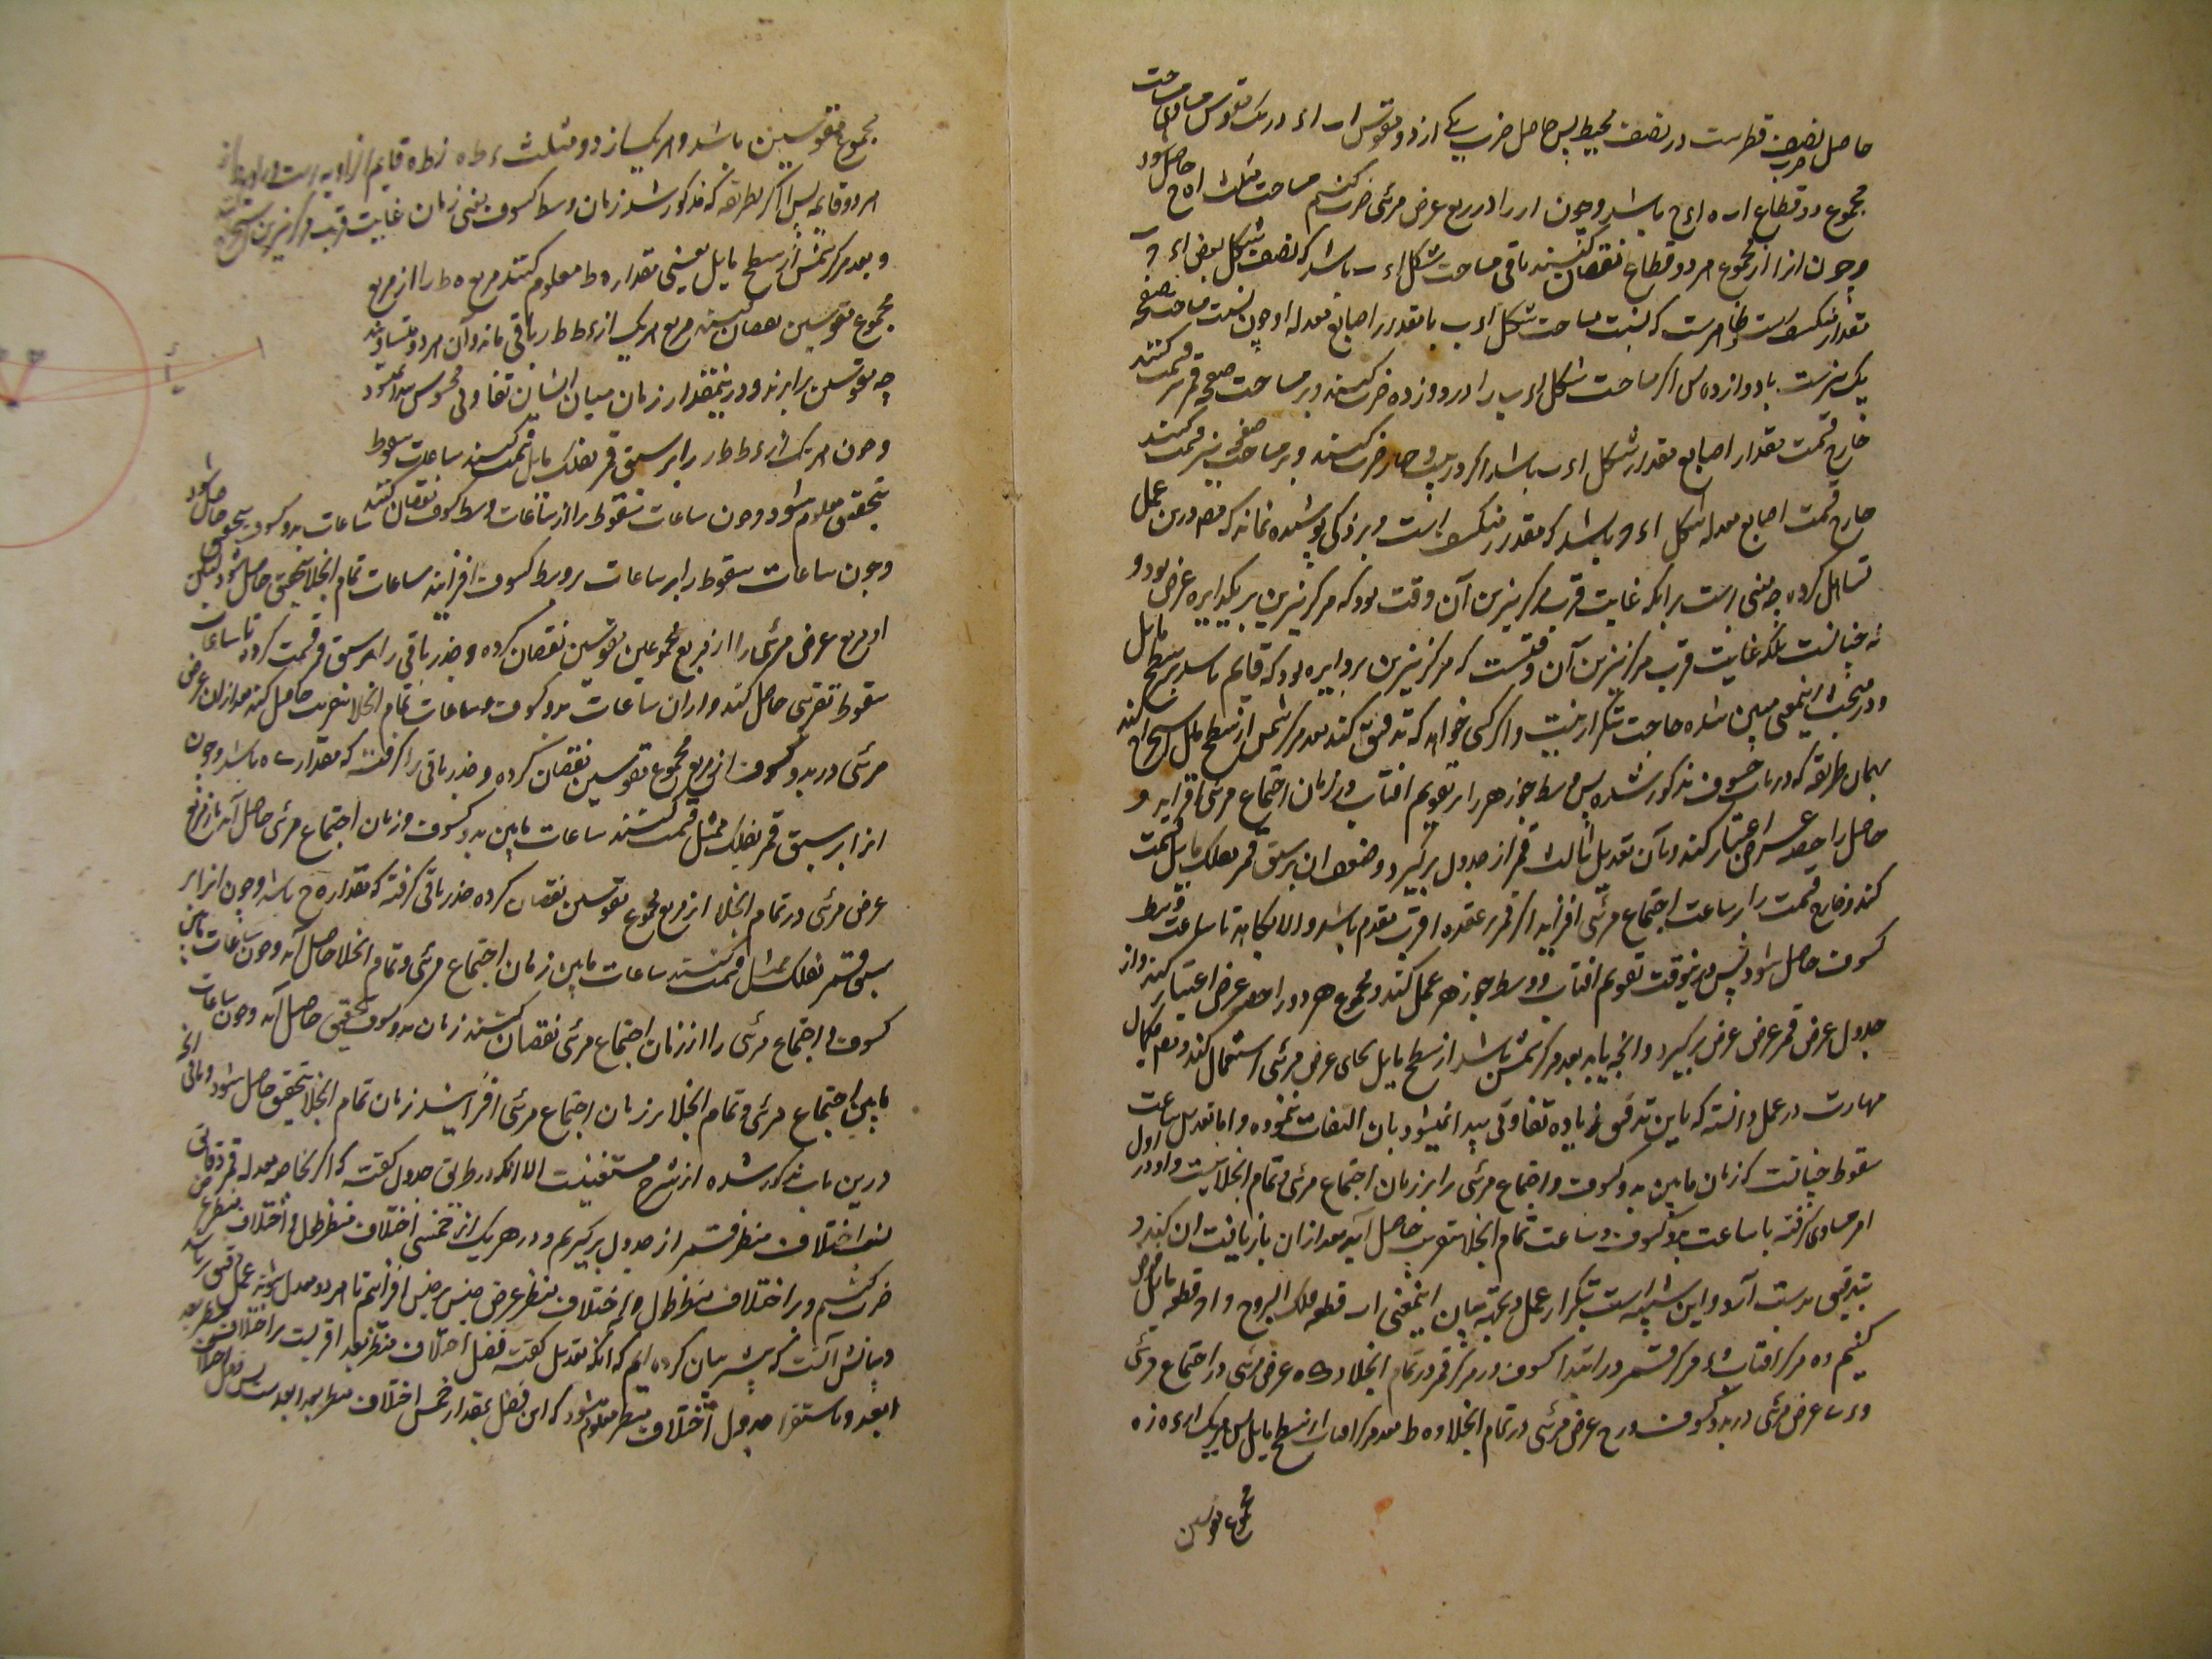 حاصل ضرب نصف قطرست در نصف محیط پس حاصل ضرب یکی از دو مقوس اب اء در یک قوس مساحت
مجموع دو قطاع اب ه اء ح باشد و چون ار را در ربع عرض مرئی ضرب کنیم مساحت مثلث اه ح حاصل شود
و چون انرا از مجموع هر دو قطاع نقصان کنند باقی مساحت شکل اء ب باشد که نصف شکل بعض اء
مقدار منکسف است و ظاهرست که نسبت مساحت شکل اء ب با مقدار اصابع معدله او چون نسبت مساحت صفحه
یک نیرست با دوازده پس اگر مساحت شکل اء ب را در دوازده ضرب کنند و بر مساحت صفحه قمر قسمت کنند
خارج قسمت مقدار اصابع مقدار شکل اء ب باشد اگر در بیست و چهار ضرب کنند و بر مساحت صفحه نیر قسمت کنند
خارج قسمت اصابع معدله شکل اء و باشد که مقدار منکسف است و بر ذکی پوشیده نماند که مصـ درین عمل
تساهل کرده چه مبنی است برانکه غایت قرب مرکز نیرین آن وقت بود که مرکز نیرین بر یک دایره عرض بود و
نه چنانست بلکه غایت قرب مرکز نیرین آن وقتست که مرکز نیرین بر دایره بود که قایم باشد بر سطح مایل
و در مبحث اینمعنی مبین شده حاجت تکرار نیست و اگر کسی خواهد که تدقیق کند بعد مرکز شمس از سطح مایل استخراج کند
بهمان طریقه که در باب خسوف مذکور شده پس وسط جوزهر را بر تقویم افتاب در زمان اجتماع مرئی افزاید و
حاصل را حصه عرض اعتبار کند و بآن تعدیل ثالث قمر از جدول برگیرد و ضعف ان بر سبق قمر بفلک مایل قسمت
کند و خارج قسمت را بر ساعت اجتماع مرئی افزاید اگر قمر بعقده اقرب مقدم باشد والا بکاهد تا ساعت وسط
کسوف حاصل شود پس درینوقت تقویم افتاب و وسط جوزهر عمل کند و مجموع هر دو را حصه عرض اعتبار کند و از
جدول عرض قمر عرض عرض برگیرد و انچه یابد بعد مرکز شمس باشد از سطح مایل بجای عرض مرئی استعمال کند و مصـ بکمال
مهارت در عمل دانسته که باین تدقیق زیاده تفاوتی پیدا نمیشود بان التفات ننموده و اما تعدیل ساعت
سقوط چنانست که زمان مابین بدو کسوف و اجتماع مرئی را بر زمان اجتماع مرئی و تمام انجلاست و او در اول
امر مساوی گرفته با ساعت بدو کسوف و ساعت تمام انجلا بتقریب حاصل آید بعد ازان باز یافت ان کند و
بتدقیق بدست آرد و این شبیه است بتکرار عمل و بجهة بیان اینمعنی اب قطعه فلک البروج و اه قطعه مایل فرض
کنیم و ه مرکز افتاب و ء مرکز قمر در ابتدا کسوف و ر مرکز قمر در تمام انجلا و ه عرض مرئی در اجتماع مرئی
و ء ب عرض مرئی در بدو کسوف و ر ح عرض مرئی در تمام انجلا و ه ط بعد مرکز افتاب از سطح مایل پس هریک از ء ه ز ه
مجموع قوسین
مجموع مقوسین باشد و هر یک از دو مثلث ء ط ه ز ط ه قایم الزاویه است
هر دو قائمه پس اگر بطریقه که مذکور شد زمان وسط کسوف یعنی زمان غایت قرب مرکز نیرین استخراج
و بعد مرکز شمس از سطح مایل یعنی مقدار ه ط معلوم کنند مربع ه ط را از مربع
مجموع مقوسین نقصان کنند مربع هر یک از ء ط ط ر باقی ماند و آن هر دو متساویند
چه مقوسین برابرند و در اینمقدار زمان میان ایشان تفاوتی محسوس پیدا نمیشود
و چون هر یک از ء ط ط ر را بر سبق قمر بفلک مایل قسمت کنند ساعات سقوط
بتحقیق معلوم شود و چون ساعات سقوط را از ساعات وسط کسوف نقصان کنند ساعات بدو کسوف بتحقیق حاصل شود
و چون ساعات سقوط را بر ساعات وسط کسوف افزایند ساعات تمام انجلا بتحقیق حاصل شود لیکن
او مربع عرض مرئی را از مربع مجموعین مقوسین نقصان کرده و جذر باقی را بر سبق قمر قسمت کرده تا ساعات
سقوط تقریبی حاصل کند و ازان ساعات بدو کسوف و ساعات تمام انجلا بتقریب حاصل کند بعد ازان عرض
مرئی در بدو کسوف از مربع مجموع مقوسین نقصان کرده و جذر باقی را گرفته که مقدار ب ه باشد و چون
انرا بر سبق قمر بفلک ممثل قسمت کنند ساعات مابین بدو کسوف و زمان اجتماع مرئی حاصل آید باز مربع
عرض مرئی در تمام انجلا از مربع مجموع مقوسین نقصان کرده جذر باقی گرفته که مقدار ه ح باشد و چون انرا بر
سبق قمر بفلک ممثل قسمت کنند ساعات مابین زمان اجتماع مرئی و تمام انجلا حاصل آید و چون ساعات مابین
کسوف و اجتماع مرئی را از زمان اجتماع مرئی نقصان کنند زمان بدو کسوف حقیقی حاصل آید و چون ساعات
مابین اجتماع مرئی و تمام انجلا بر زمان اجتماع مرئی افزایند زمان تمام انجلا بتحقیق حاصل شود و باقی انچه
درین باب مذکور شده از شرح مستغنیست الا انکه در طریق جدول گفته که اگر بخاصه معدله قمر دقایق
نسبت اختلاف منظر قمر از جدول برگیریم و در هریک از خمسی اختلاف منظر طول و اختلاف منظر عرض
ضرب کنیم و بر اختلاف منظر طول و اختلاف منظر عرض جنس بر جنس افزائیم تا هر دو معدل شوند عمل دقیق تر باشد
و بیانش آنست که پیشتر بیان کرده ایم که انکه تعدیل گفته فضل اختلاف منظر بعد اقربست بر اختلاف منظر بعد
ابعد و باستقرا جدول اختلاف منظر معلوم شود که این فضل بمقدار خمس اختلاف منظر بعد ابعدست پس